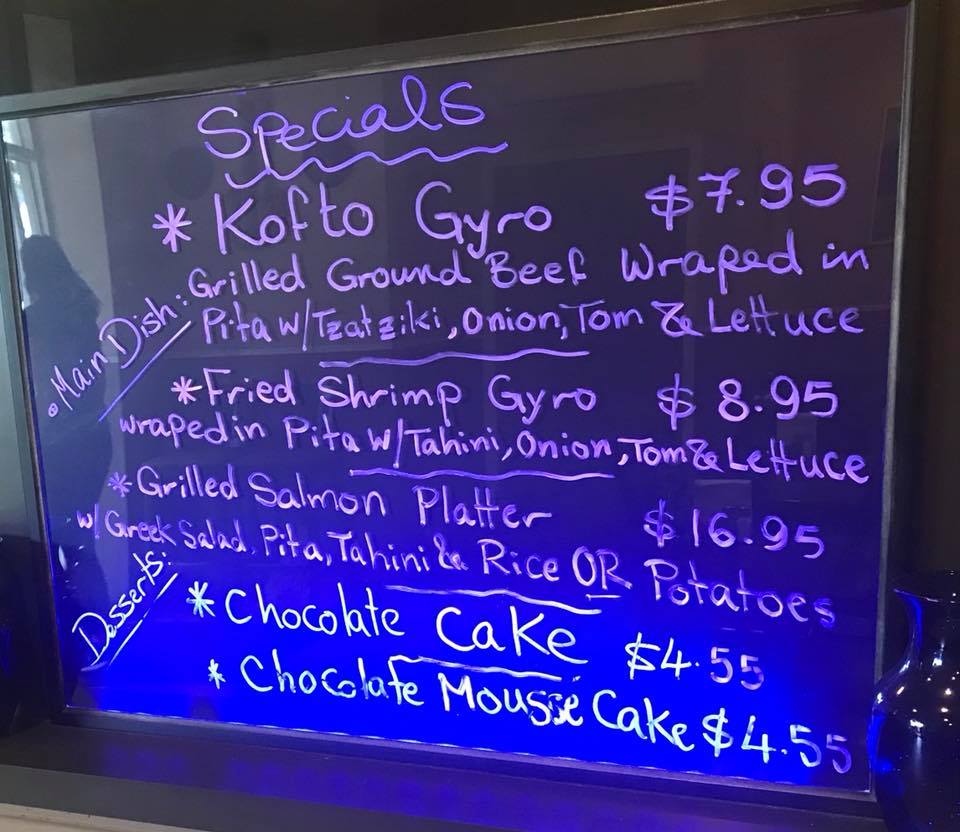 Specials
* Kofto Gyro $7.95
• Main Dish: Grilled Ground Beef Wraped in
Pita w/Tzatziki, Onion, Tom & Lettuce
* Fried Shrimp Gyro $8.95
wraped in Pita w/Tahini, Onion, Tom & Lettuce
* Grilled Salmon Platter $16.95
w/ Greek Salad, Pita, Tahini & Rice OR Potatoes
Desserts:
* Chocolate Cake $4.55
* Chocolate Mousse Cake $4.55